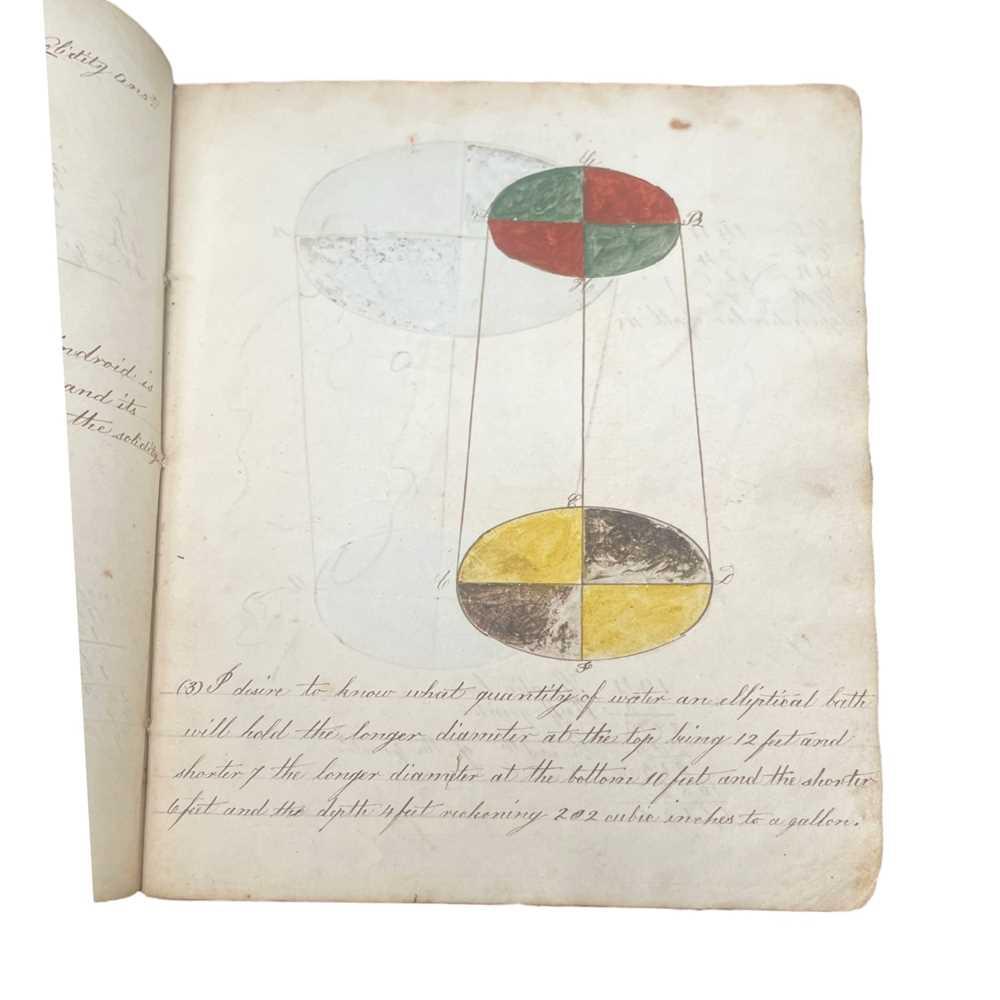 Solidity Ans.
Cylindroid is
and its
the solidity
G
A
B
H
E
C
D
F
(3) I desire to know what quantity of water an elliptical bath
will hold the longer diameter at the top being 12 feet and
shorter 7 the longer diameter at the bottom 10 feet and the shorter
6 feet and the depth 4 feet reckoning 282 cubic inches to a gallon.